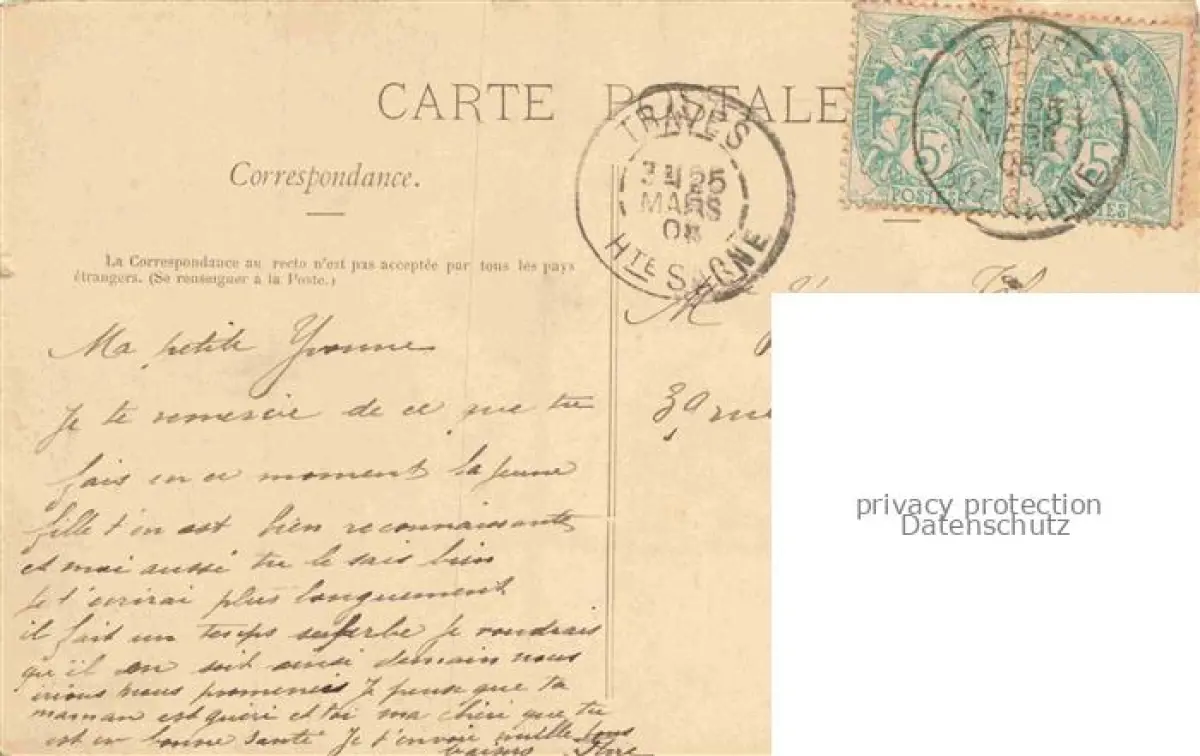 CARTE POSTALE
Correspondance.
La Correspondance au recto n'est pas acceptée par tous les pays
étrangers. (Se renseigner à la Poste.)
TRAVES
25
MARS
Hte SAONE
TRAVES
25
Hte SAONE
5c
POSTES
5c
POSTES
Ma petite Yvonne
Je te remercie de ce que tu
fais en ce moment la jeune
fille t'en est bien reconnaissante
et moi aussi tu le sais bien
Je t'ecrirai plus longuement
il fait un temps superbe Je voudrais
qu'il en soit ainsi demain nous
irions nous promener Je pense que ta
maman est guéri et toi ma chéri que tu
est en bonne santé Je t'envoie mille
baisers
M
39 rue
privacy protection
Datenschutz